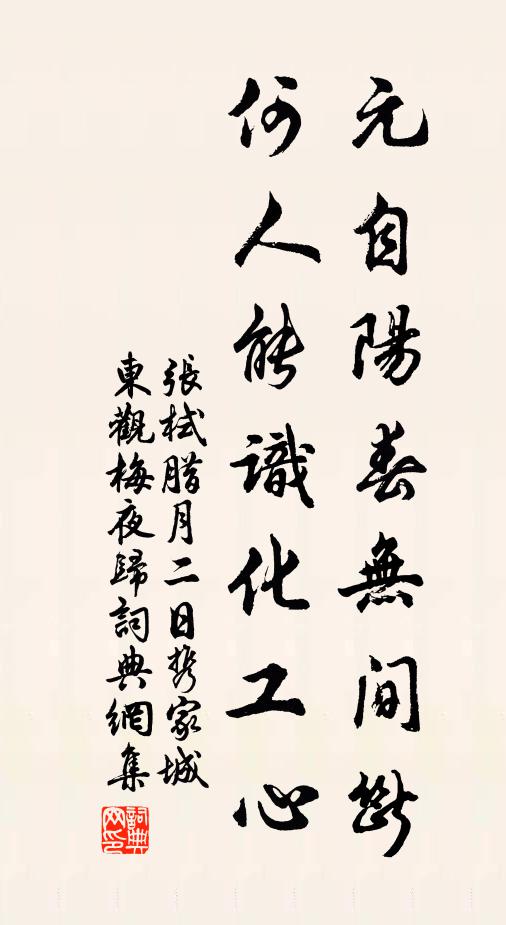 元自陽春無間斷
何人能識化工心
張栻腊月二日携家城
東觀梅夜歸詞典網集
詞典
网印